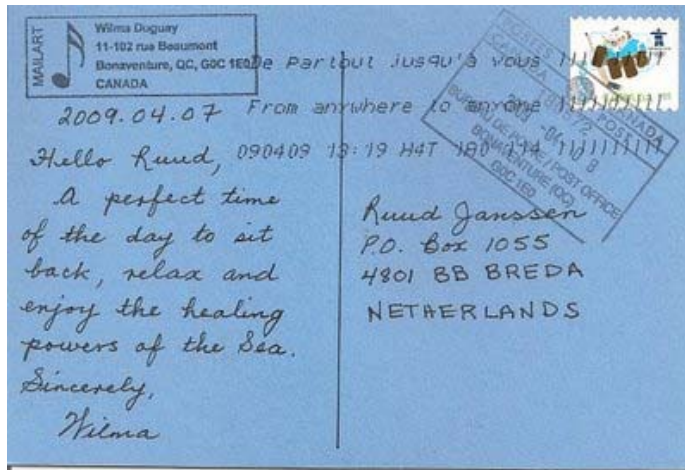 MAILART
Wilma Duguay
11-102 rue Beaumont
Bonaventure, QC, G0C 1E0
CANADA
De Partout jusqu'à vous
From anywhere to anyone
090409 13:19 H4T 1A0 114
POSTES CANADA
CANADA POST
2009 -04- 0 8
BUREAU DE POSTE / POST OFFICE
BONAVENTURE (QC)
G0C 1E0
2009.04.07
Hello Ruud,
A perfect time
of the day to sit
back, relax and
enjoy the healing
powers of the Sea.
Sincerely,
Wilma
Ruud Janssen
P.O. Box 1055
4801 BB BREDA
NETHERLANDS